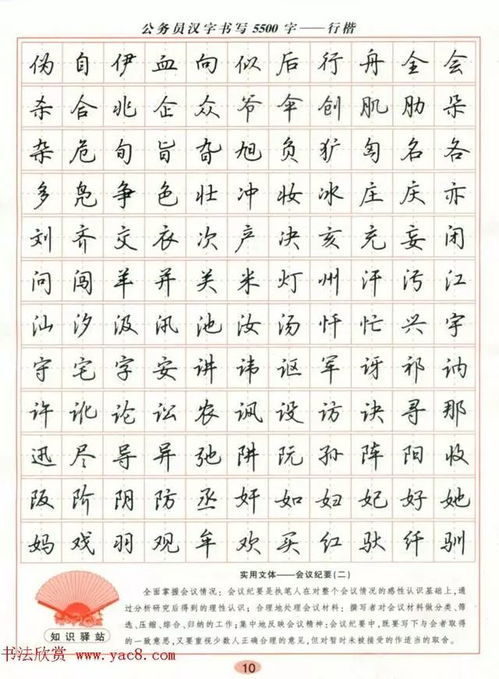 公务员汉字书写5500字——行楷
伪自伊血向似后行舟全会
杀合兆企众爷伞创肌肋朵
杂危旬旨旮旭负犷匈名各
多凫争色壮冲妆冰庄庆亦
刘齐交衣次产决亥充妄闭
问闯羊并关米灯州汗污江
汕汐汲汛池汝汤忏忙兴宇
守宅字安讲讳讴军讶祁讷
许讹论讼农讽设访诀寻那
迅尽导异弛阱阮孙阵阳收
阪阶阴防丞奸如妇妃好她
妈戏羽观牟欢买红驮纤驯
实用文体——会议纪要(二)
全面掌握会议情况:会议纪要是执笔人在对整个会议情况的感性认识基础上,通
过分析研究后得到的理性认识;合理地处理会议材料:撰写者对会议材料做分类、筛
选、压缩、综合、归纳的工作;集中地反映会议精神:会议纪要中,既要写下与会者取得
的一致意思,又要重视少数人正确合理的意见,但对暂时未被接受的作适当的取舍。
知识驿站
书法欣赏 www.yac8.com
10